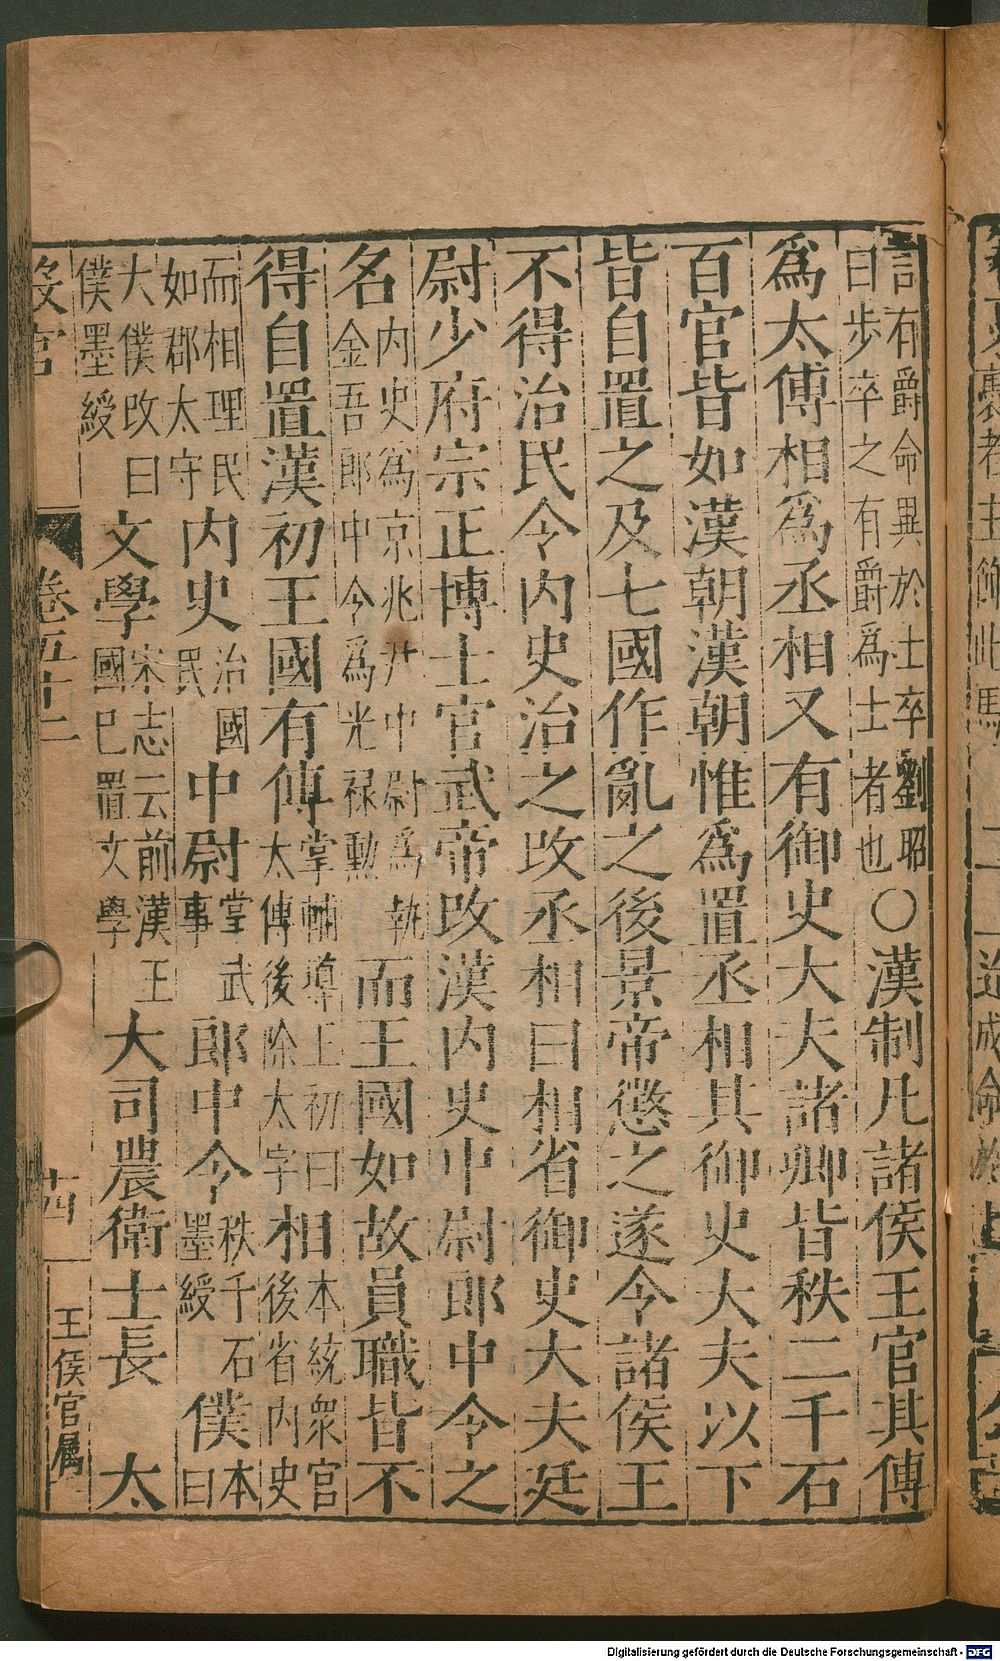 言有爵命異於士卒劉昭
曰步卒之有爵爲士者也
〇漢制凡諸侯王官其傅
爲太傅相爲丞相又有御史大夫諸卿皆秩二千石
百官皆如漢朝漢朝惟爲置丞相其御史大夫以下
皆自置之及七國作亂之後景帝懲之遂令諸侯王
不得治民令内史治之改丞相曰相省御史大夫廷
尉少府宗正博士官武帝改漢内史中尉郎中令之
名
内史爲京兆尹中尉爲執
金吾郎中令爲光祿勳
而王國如故員職皆不
得自置漢初王國有傅
掌輔導王初曰
太傅後除太字
相
本統衆官
後省内史
而相理民
如郡太守
内史
治國
民
中尉
掌武
事
郎中令
秩千石
墨綬
僕
本曰
大僕改曰
僕墨綬
文學
宋志云前漢王
國已置文學
大司農衛士長 太
卷五十二
十四
王侯官屬
Digitalisierung gefördert durch die Deutsche Forschungsgemeinschaft - DFG